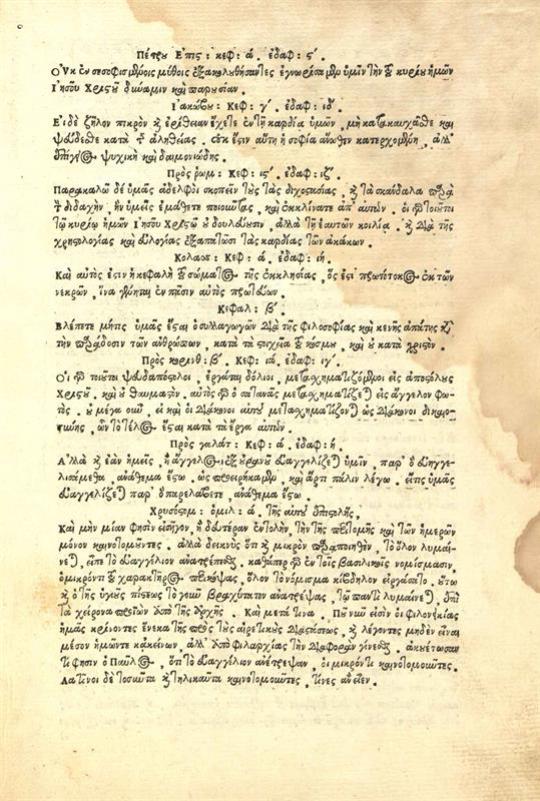 Πέτρου Ἐπις: κεφ: ά. ἐδαφ: ς΄.
Οὐκ ἐν σεσοφισμένοις μύθοις ἐξακολουθήσαντες ἐγνωρίσαμεν ὑμῖν τὴν τοῦ κυρίου ἡμῶν
Ἰησοῦ Χριστοῦ δύναμιν καὶ παρουσίαν.
Ἰακώβου: Κεφ: γ΄. ἐδαφ: ιδ΄.
Εἰ δὲ ζῆλον πικρὸν καὶ ἐρίθειαν ἔχετε ἐν τῇ καρδία ὑμῶν, μὴ κατακαυχᾶσθε καὶ
ψεύδεσθε κατὰ τῆς ἀληθείας. οὐκ ἔστιν αὕτη ἡ σοφία ἄνωθεν κατερχομένη, ἀλλ᾽
ἐπίγειος ψυχικὴ καὶ δαιμονιώδης.
Πρὸς ῥωμ: Κεφ: ις΄. ἐδαφ: ιζ΄.
Παρακαλῶ δὲ ὑμᾶς ἀδελφοὶ σκοπεῖν τοὺς τὰς διχοστασίας, καὶ τὰ σκάνδαλα παρὰ
τὴν διδαχὴν, ἣν ὑμεῖς ἐμάθετε ποιοῦντας, καὶ ἐκκλίνατε ἀπ᾽ αὐτῶν. οἱ γὰρ τοιοῦτοι
τῷ κυρίῳ ἡμῶν Ἰησοῦ Χριστῷ οὐ δουλεύουσιν, ἀλλὰ τῇ ἑαυτῶν κοιλία. καὶ διὰ τῆς
χρηστολογίας καὶ εὐλογίας ἐξαπατῶσι τὰς καρδίας τῶν ἀκάκων.
Κολασσ: Κεφ: ά. ἐδαφ: ιή.
Καὶ αὐτὸς ἐστιν ἡ κεφαλὴ τοῦ σώματος τῆς ἐκκλησίας, ὅς ἐστι πρωτότοκος ἐκ τῶν
νεκρῶν, ἵνα γένηται ἐν πᾶσιν αὐτὸς πρωτεύων.
Κεφαλ: β΄.
Βλέπετε μήτις ὑμᾶς ἔσται ὁ συλαγωγῶν διὰ τῆς φιλοσοφίας καὶ κενῆς ἀπάτης κατὰ
τὴν παράδοσιν τῶν ἀνθρώπων, κατὰ τὰ στοιχεῖα τοῦ κόσμου, καὶ οὐ κατὰ χριστὸν.
Πρὸς κορινθ: β΄. Κεφ: ιά. ἐδαφ: ιγ΄.
Οἱ γὰρ τοιοῦτοι ψευδαπόστολοι, ἐργάται δόλιοι, μετασχηματιζόμενοι εἰς ἀποστόλους
Χριστοῦ, καὶ οὐ θαυμαστὸν, αὐτὸς γὰρ ὁ σατανᾶς μετασχηματίζεται εἰς ἄγγελον φω-
τὸς. οὐ μέγα οὖν, εἰ καὶ οἱ διάκονοι αὐτοῦ μετασχηματίζονται ὡς διάκονοι δικαιο-
σύνης, ὧν τὸ τέλος ἔσται κατὰ τὰ ἔργα αὐτῶν.
Πρὸς γαλάτ: Κεφ: ά. ἐδαφ: ή.
Ἀλλὰ καὶ ἐὰν ἡμεῖς, ἢ ἄγγελος ἐξ οὐρανοῦ εὐαγγελίζεται ὑμῖν, παρ᾽ ὃ εὐηγγε-
λισάμεθα, ἀνάθεμα ἔστω, ὡς προειρήκαμεν, καὶ ἄρτι πάλιν λέγω. εἴτις ὑμᾶς
εὐαγγελίζεται παρ᾽ ὃ παρελάβετε, ἀνάθεμα ἔστω.
Χρυσόστομ: ὁμιλ: ά. τῆς αὐτοῦ ἐπιστολῆς.
Καὶ μὴν μίαν φησὶν εἰσῆγον, ἢ δευτέραν ἐντολὴν, τὴν τῆς περιτομῆς καὶ τῶν ἡμερῶν
μόνον καινοτομοῦντες. ἀλλὰ δεικνὺς ὅτι καὶ μικρὸν παραποιηθὲν, τὸ ὅλον λυμαί-
νεται, εἶπε τὸ εὐαγγέλιον ἀνατρέπεσθαι, καθάπερ γὰρ ἐν τοῖς βασιλικοῖς νομίσμασιν,
ὁ μικρόν τι τοῦ χαρακτῆρος περικόψας, ὅλον τὸ νόμισμα κίβδηλον εἰργάσατο, οὕτω
καὶ ὁ τῆς ὑγιοῦς πίστεως τὸ γοῦν βραχύτατον ἀνατρέψας, τῷ παντὶ λυμαίνεται, ἐπὶ
τὰ χείρονα προϊὼν ἀπὸ τῆς ἀρχῆς. Καὶ μετά τινα. Ποῦ νῦν εἰσὶν οἱ φιλονεικίας
ἡμᾶς κρίνοντες ἕνεκα τῆς πρὸς τοὺς αἱρετικοὺς διαστάσεως, καὶ λέγοντες μηδὲν εἶναι
μέσον ἡμῶν τε κακείνων, ἀλλ᾽ ἀπὸ φιλαρχίας τὴν διαφορὰν γίνεσθαι, ἀκουέτωσαν
τί φησιν ὁ Παῦλος, ὅτι τὸ εὐαγγέλιον ἀνέτρεψαν, οἱ μικρόν τι καινοτομοῦντες.
Λατῖνοι δὲ τοσαῦτα καὶ τηλικαῦτα καινοτομοῦντες, τίνες ἂν εἶεν.